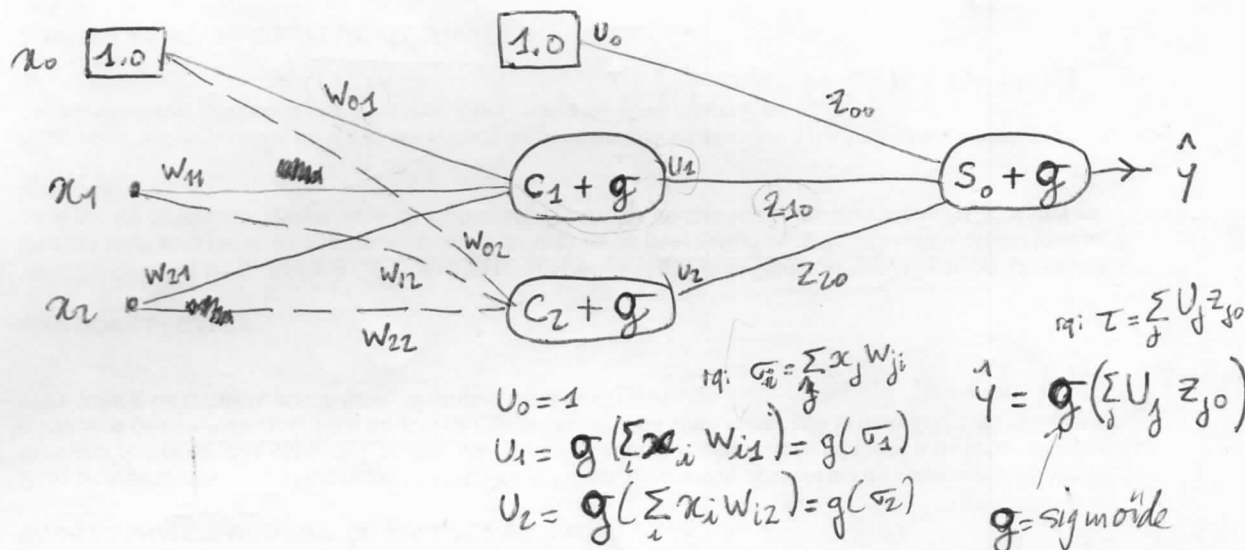 x₀ 1.0
1.0 U₀
W₀₁
Z₀₀
x₁ W₁₁
C₁ + g U₁
Z₁₀
S₀ + g
ŷ
W₀₂
x₂ W₂₁
W₁₂
W₂₂
C₂ + g U₂
Z₂₀
rq: σᵢ = Σⱼ xⱼ Wⱼᵢ
rq: τ = Σⱼ Uⱼ Zⱼ₀
U₀ = 1
U₁ = g(Σᵢ xᵢ Wᵢ₁) = g(σ₁)
U₂ = g(Σᵢ xᵢ Wᵢ₂) = g(σ₂)
ŷ = g(Σⱼ Uⱼ Zⱼ₀)
g = sigmoïde